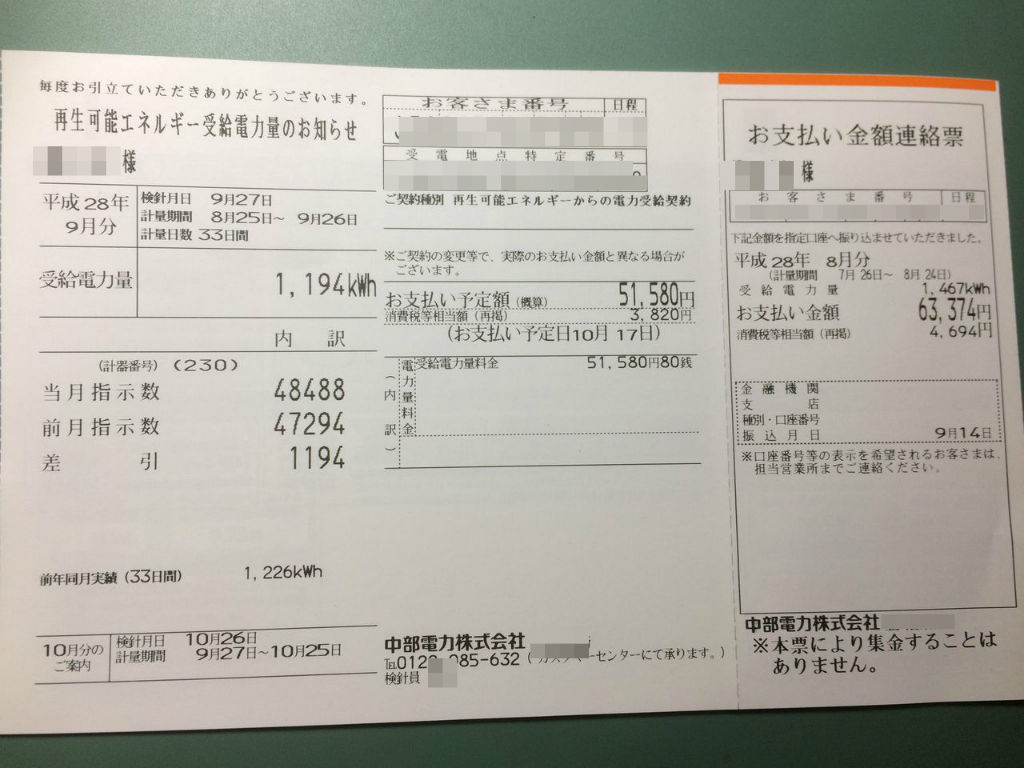 毎度お引立ていただきありがとうございます。
再生可能エネルギー受給電力量のお知らせ
様
平成28年
9月分
検針月日 9月27日
計量期間 8月25日~ 9月26日
計量日数 33日間
受給電力量
1,194kWh
内 訳
(計器番号) (230)
当月指示数 48488
前月指示数 47294
差 引 1194
前年同月実績 (33日間) 1,226kWh
10月分の
ご案内
検針月日 10月26日
計量期間 9月27日~10月25日
お客さま番号 日程
受電地点特定番号
ご契約種別 再生可能エネルギーからの電力受給契約
※ご契約の変更等で、実際のお支払い金額と異なる場合が
ございます。
お支払い予定額 (概算) 51,580円
消費税等相当額 (再掲) 3,820円
(お支払い予定日10月 17日)
(内訳)
電力量料金
受給電力量料金 51,580円80銭
中部電力株式会社
TEL0120-985-632 (カスタマーセンターにて承ります。)
検針員
お支払い金額連絡票
様
お客さま番号 日程
下記金額を指定口座へ振り込ませていただきました。
平成28年 8月分
(計量期間 7月26日~ 8月24日)
受給電力量 1,467kWh
お支払い金額 63,374円
消費税等相当額 (再掲) 4,694円
金融機関
支店
種別・口座番号
振込月日 9月14日
※口座番号等の表示を希望されるお客さまは、
担当営業所までご連絡ください。
中部電力株式会社
※本票により集金することは
ありません。